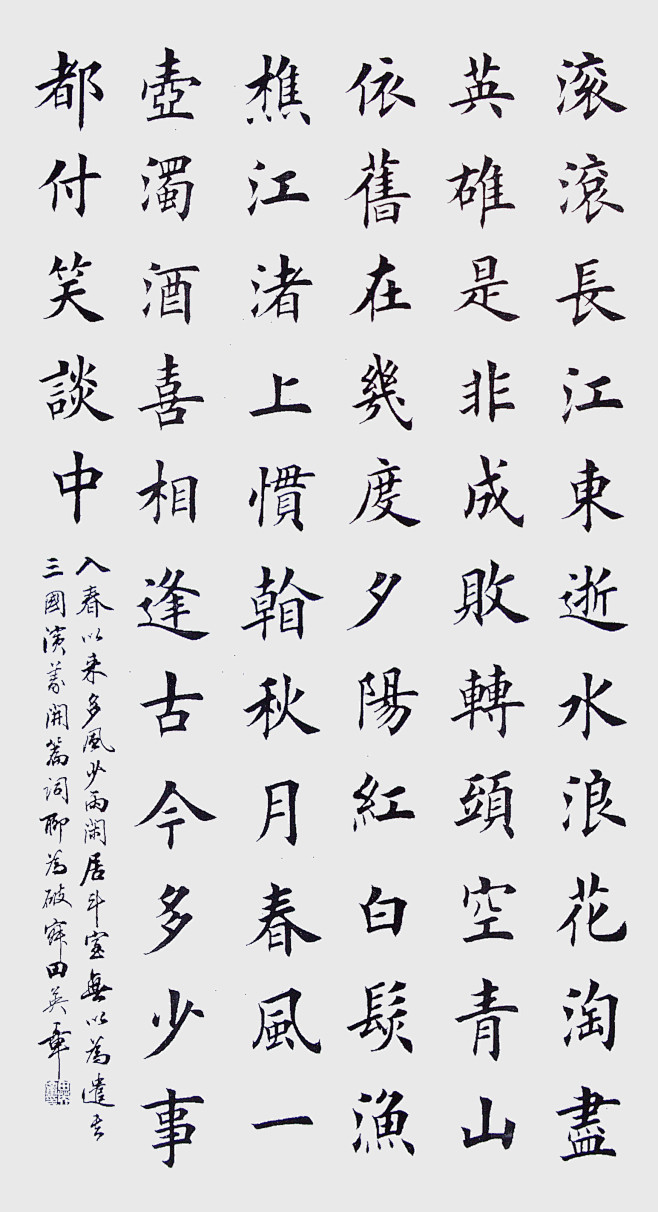 滚滾長江東逝水浪花淘盡
英雄是非成敗轉頭空青山
依舊在幾度夕陽紅白髮漁
樵江渚上慣看秋月春風一
壺濁酒喜相逢古今多少事
都付笑談中
入春以来多風少雨閑居斗室無以為遣
三國演義開篇詞聊為破寂田英章